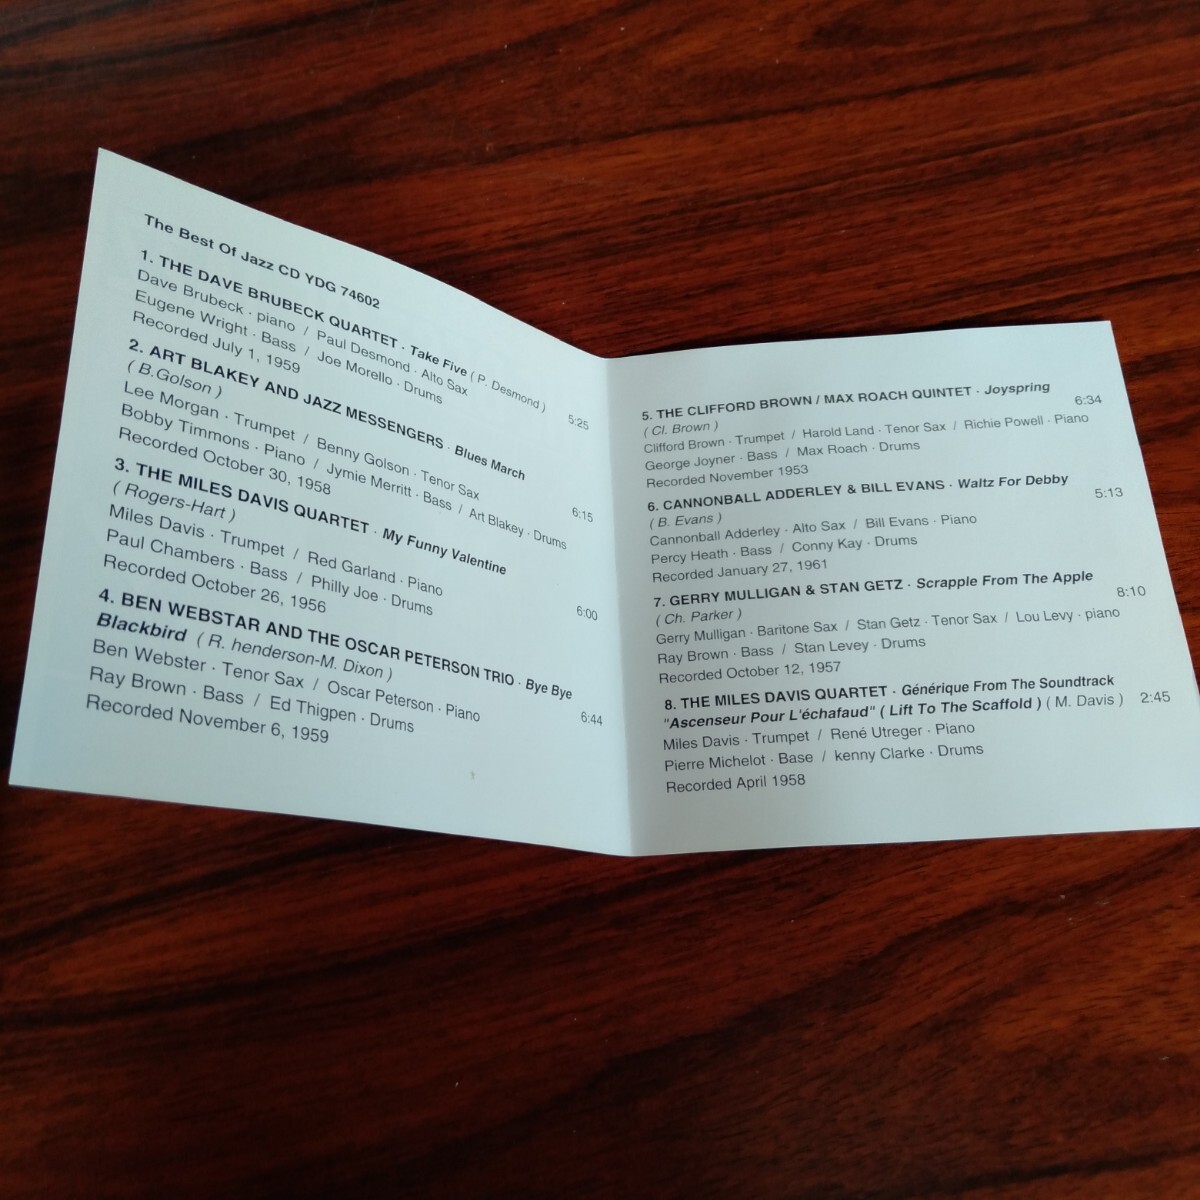 The Best Of Jazz CD YDG 74602
1. THE DAVE BRUBECK QUARTET · Take Five ( P. Desmond )
Dave Brubeck · piano / Paul Desmond · Alto Sax 5:25
Eugene Wright · Bass / Joe Morello · Drums
Recorded July 1, 1959
2. ART BLAKEY AND JAZZ MESSENGERS · Blues March
( B.Golson )
Lee Morgan · Trumpet / Benny Golson · Tenor Sax 6:15
Bobby Timmons · Piano / Jymie Merritt · Bass / Art Blakey · Drums
Recorded October 30, 1958
3. THE MILES DAVIS QUARTET · My Funny Valentine
( Rogers-Hart )
Miles Davis · Trumpet / Red Garland · Piano 6:00
Paul Chambers · Bass / Philly Joe · Drums
Recorded October 26, 1956
4. BEN WEBSTAR AND THE OSCAR PETERSON TRIO · Bye Bye
Blackbird ( R. henderson-M. Dixon )
Ben Webster · Tenor Sax / Oscar Peterson · Piano 6:44
Ray Brown · Bass / Ed Thigpen · Drums
Recorded November 6, 1959
5. THE CLIFFORD BROWN / MAX ROACH QUINTET · Joyspring
( Cl. Brown ) 6:34
Clifford Brown · Trumpet / Harold Land · Tenor Sax / Richie Powell · Piano
George Joyner · Bass / Max Roach · Drums
Recorded November 1953
6. CANNONBALL ADDERLEY & BILL EVANS · Waltz For Debby
( B. Evans ) 5:13
Cannonball Adderley · Alto Sax / Bill Evans · Piano
Percy Heath · Bass / Conny Kay · Drums
Recorded January 27, 1961
7. GERRY MULLIGAN & STAN GETZ · Scrapple From The Apple
( Ch. Parker ) 8:10
Gerry Mulligan · Baritone Sax / Stan Getz · Tenor Sax / Lou Levy · piano
Ray Brown · Bass / Stan Levey · Drums
Recorded October 12, 1957
8. THE MILES DAVIS QUARTET · Générique From The Soundtrack
"Ascenseur Pour L'échafaud" ( Lift To The Scaffold ) ( M. Davis ) 2:45
Miles Davis · Trumpet / René Utreger · Piano
Pierre Michelot · Base / kenny Clarke · Drums
Recorded April 1958